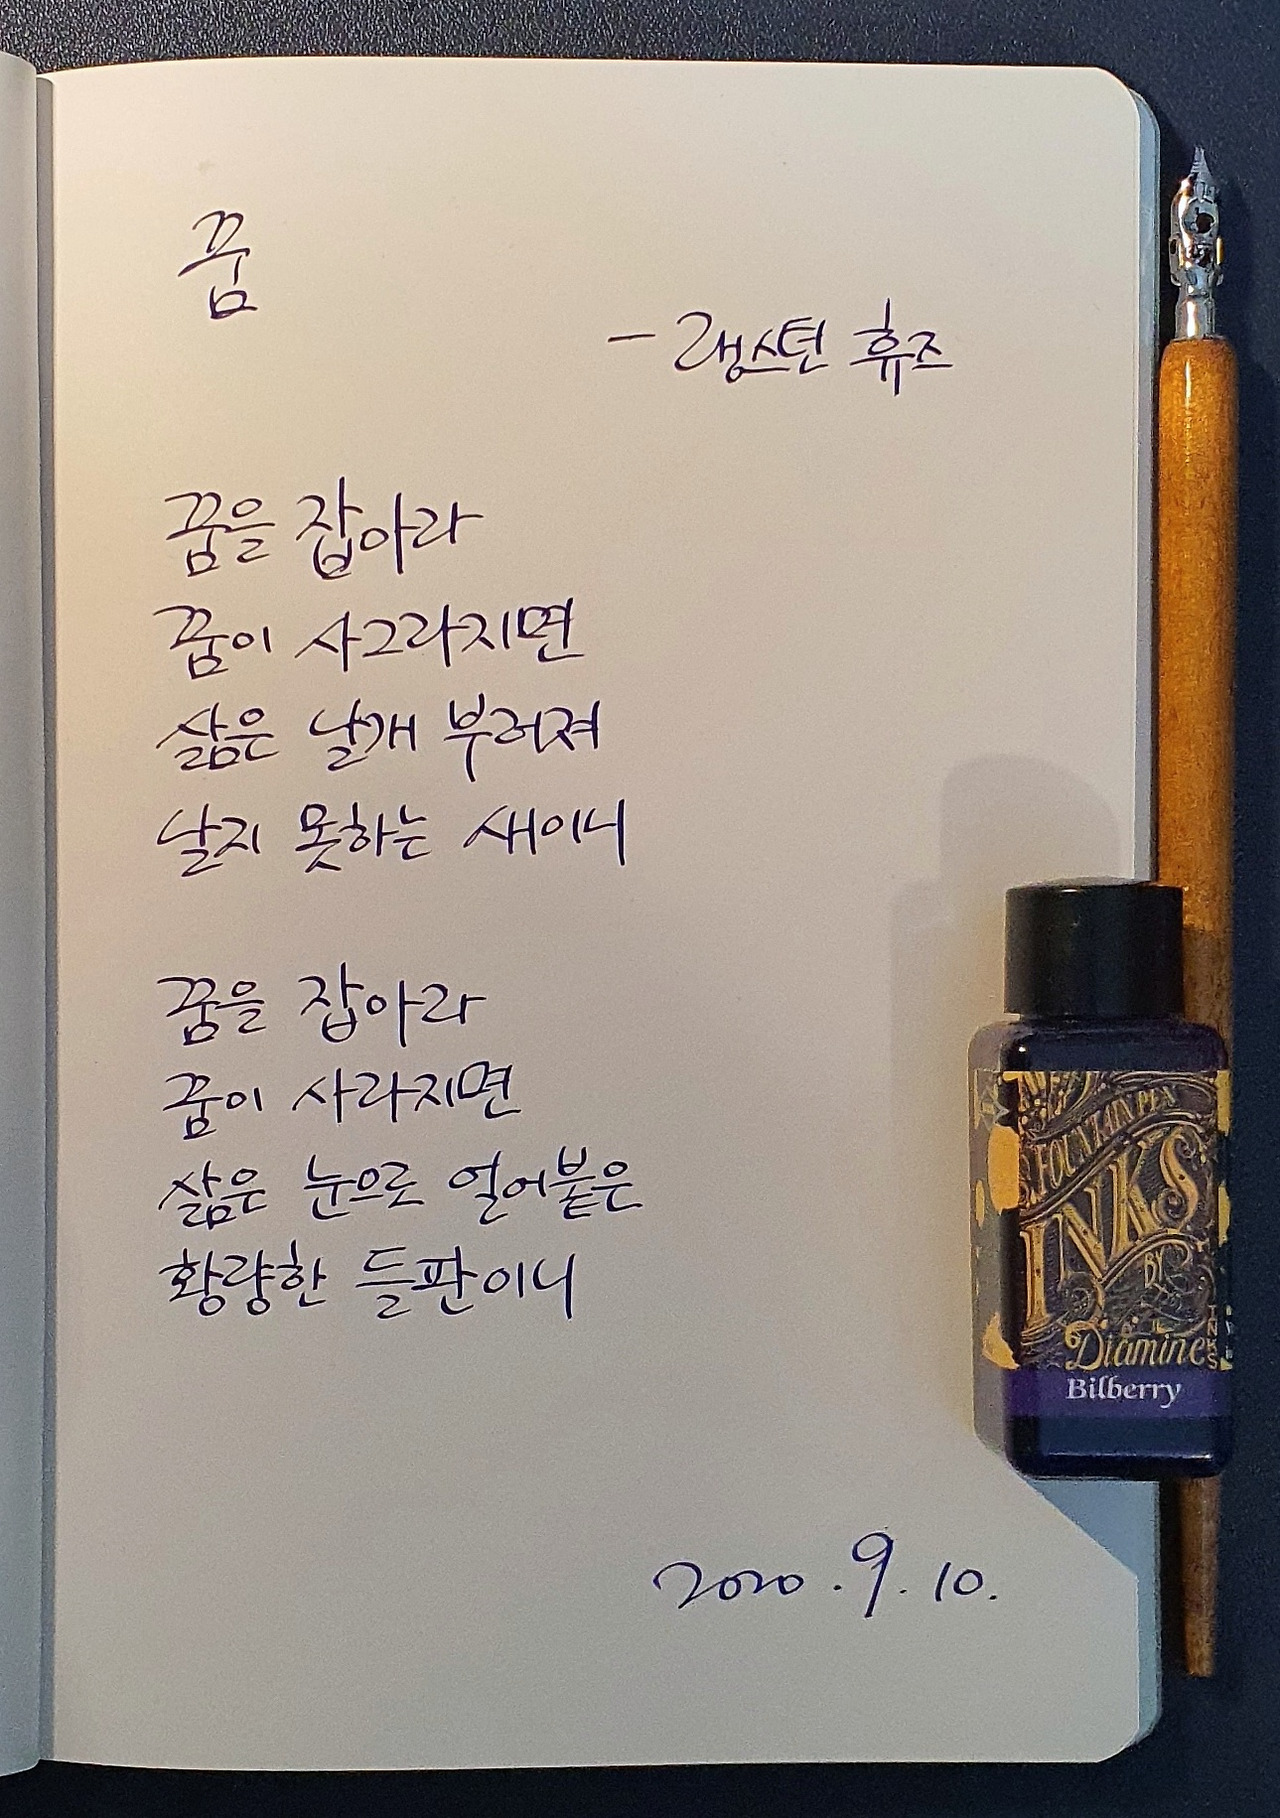 꿈
- 랭스턴 휴즈
꿈을 잡아라
꿈이 사그라지면
삶은 날개 부러져
날지 못하는 새이니
꿈을 잡아라
꿈이 사라지면
삶은 눈으로 얼어붙은
황량한 들판이니
FOUNTAIN PEN
INKS
BY
Diamine
INKS
Bilberry
2020. 9. 10.